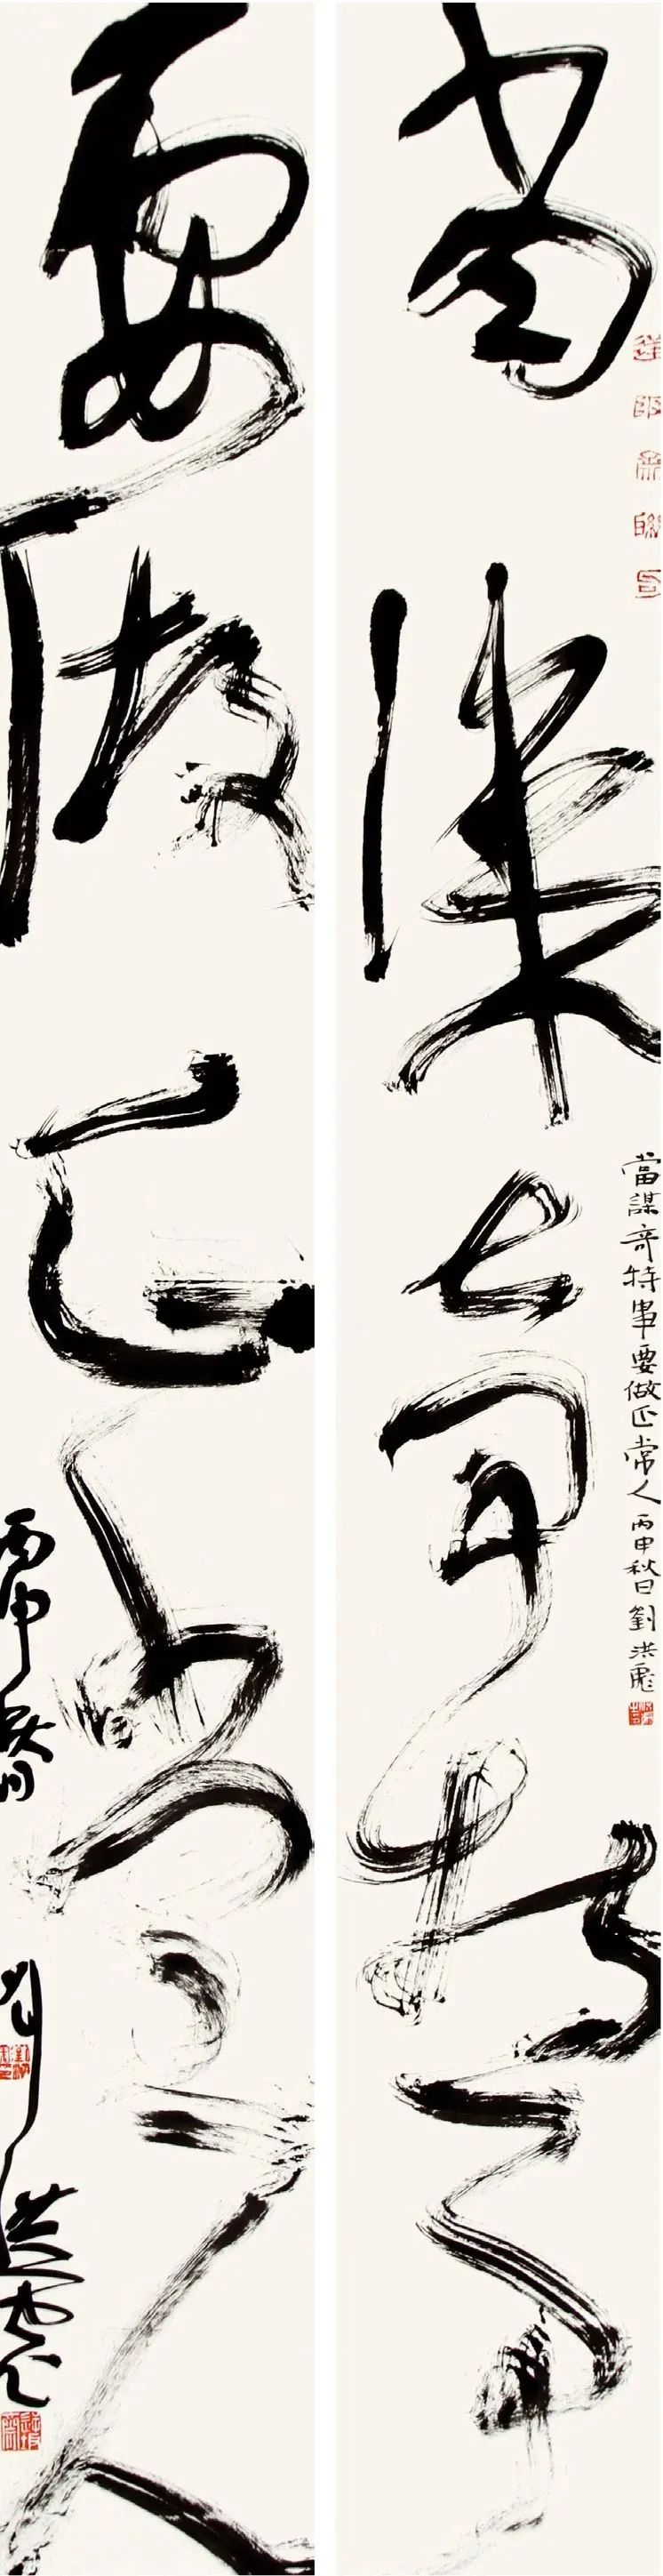 當謀奇特事
當謀奇特事要做正常人丙申秋日劉洪彪
要做正常人
丙申秋日劉洪彪